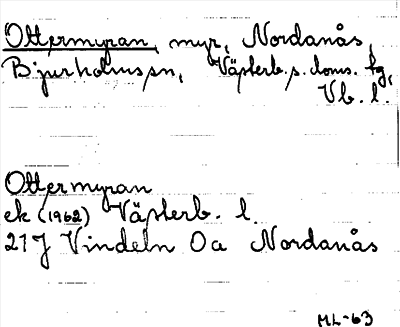 Ottermyran, myr, Nordanås,
Bjurholms sn, Västerb. s. doms. tg,
Vb. l.
Ottermyran
ek (1962) Västerb. l.
21J Vindeln Oa Nordanås
ML-63